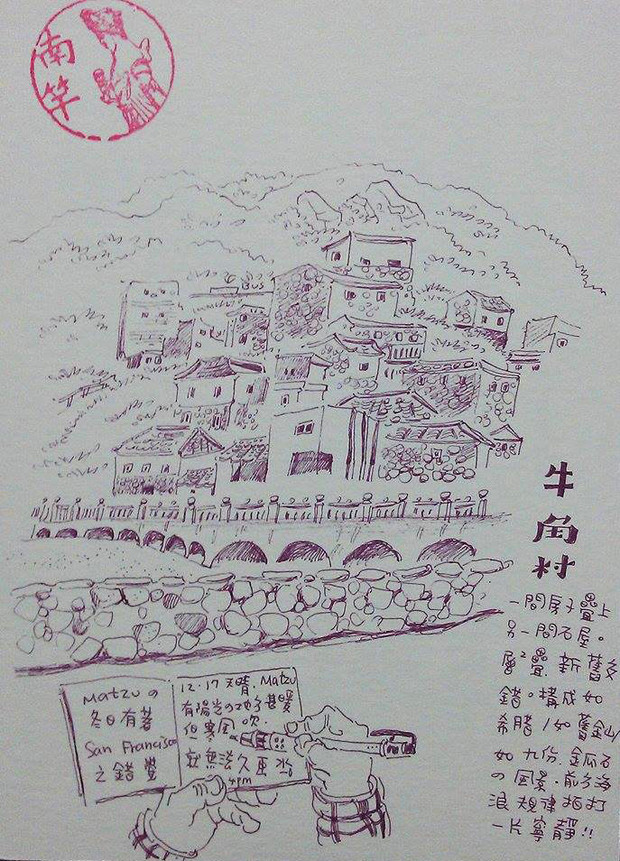 南竿
BUS
牛角村
一間房子疊上
另一間石屋。
層²疊. 新舊交
錯。構成如
希臘/如舊金山
如九份.金瓜石
の風景.前方海
浪規律拍打
一片寧靜!!
Matzu の
冬日有著
San Francisco
之錯覺
12.17 天晴. Matzu
有陽光の地方甚暖
但寒風 吹.
無法久
4pm